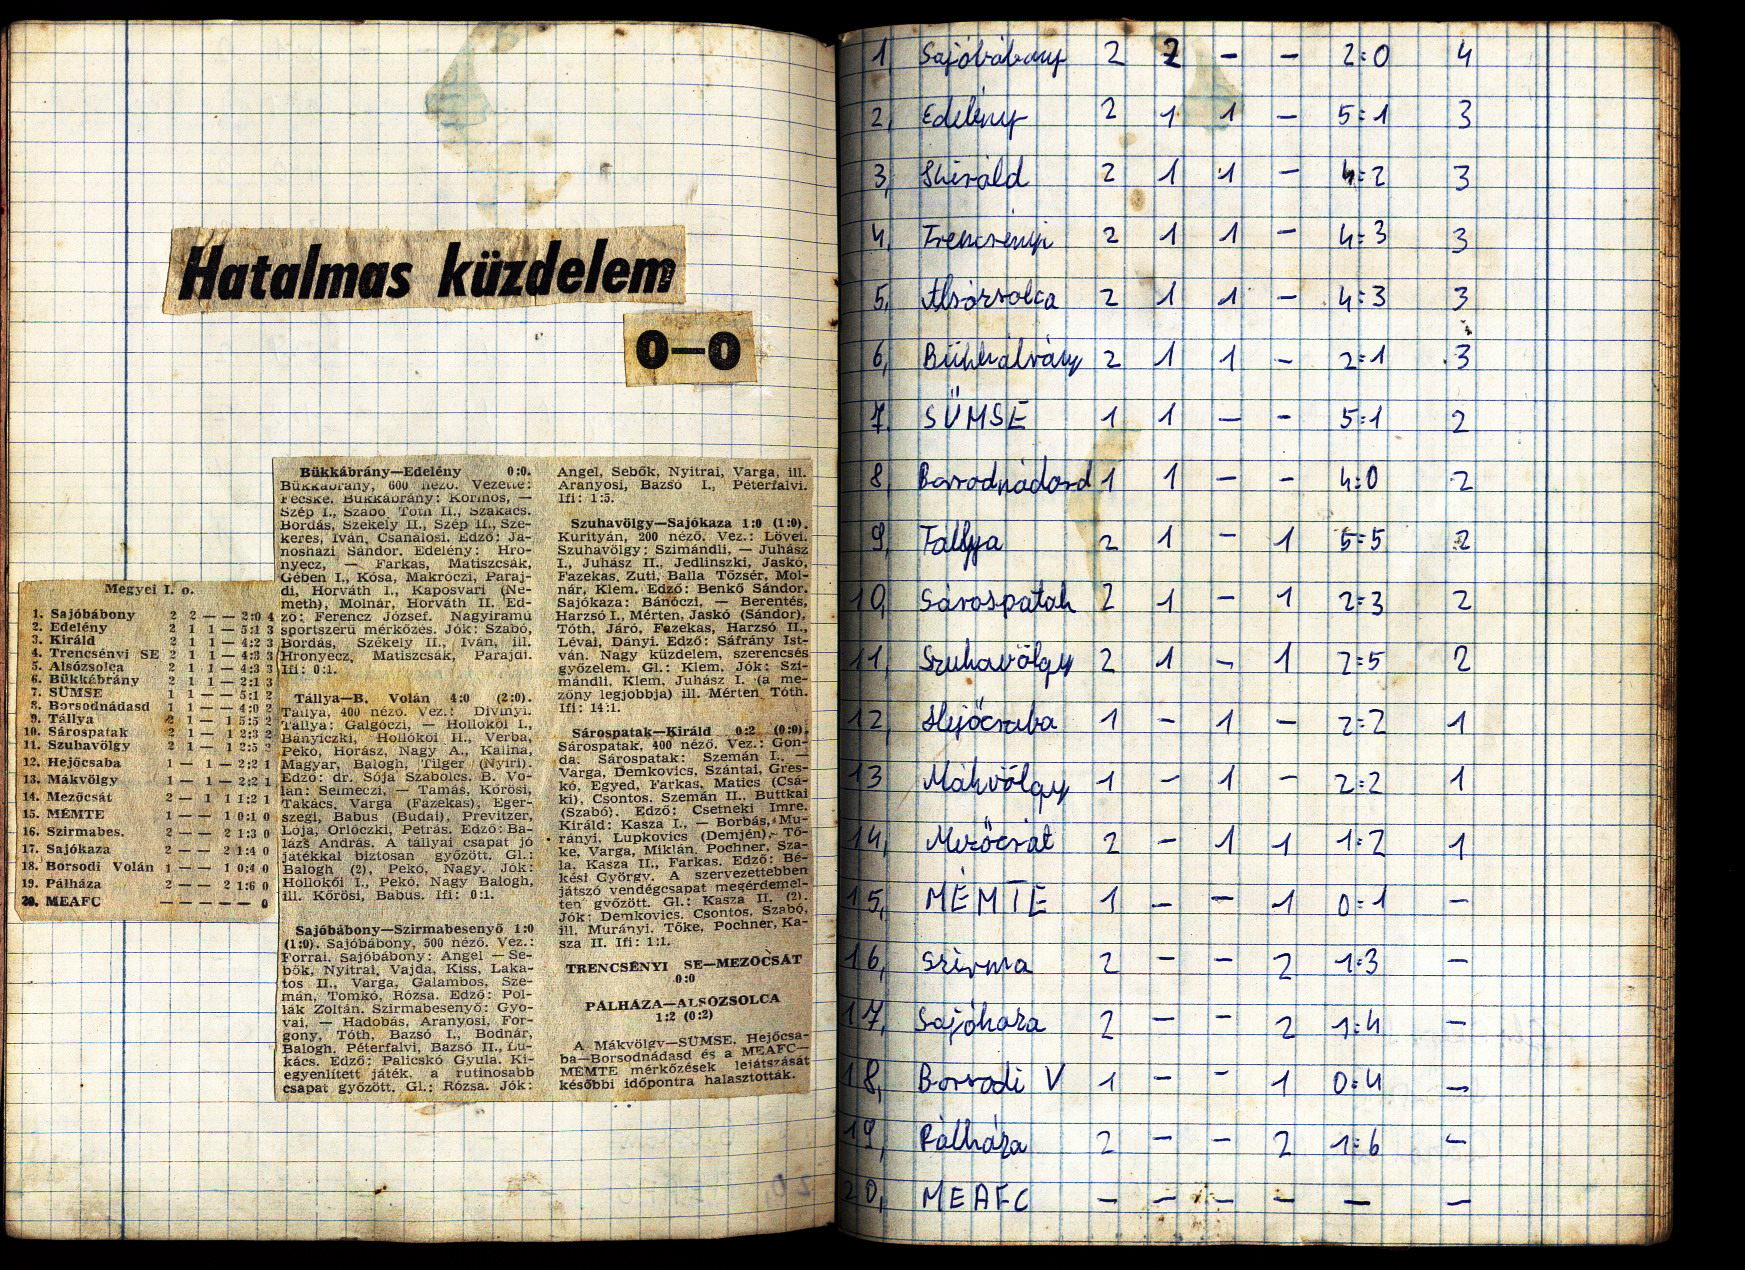 Hatalmas küzdelem
0—0
Megyei I. o.
1. Sajóbábony 2 2 — — 2:0 4
2. Edelény 2 1 1 — 5:1 3
3. Királd 2 1 1 — 4:2 3
4. Trencsényi SE 2 1 1 — 4:3 3
5. Alsózsolca 2 1 1 — 4:3 3
6. Bükkábrány 2 1 1 — 2:1 3
7. SÜMSE 1 1 — — 5:1 2
8. Borsodnádasd 1 1 — — 4:0 2
9. Tállya 2 1 — 1 5:5 2
10. Sárospatak 2 1 — 1 2:3 2
11. Szuhavölgy 2 1 — 1 2:5 2
12. Hejőcsaba 1 — 1 — 2:2 1
13. Mákvölgy 1 — 1 — 2:2 1
14. Mezőcsát 2 — 1 1 1:2 1
15. MÉMTE 1 — — 1 0:1 0
16. Szirmabes. 2 — — 2 1:3 0
17. Sajókaza 2 — — 2 1:4 0
18. Borsodi Volán 1 — — 1 0:4 0
19. Pálháza 2 — — 2 1:6 0
20. MEAFC — — — — — 0
Bükkábrány—Edelény 0:0.
Bükkábrány, 600 néző. Vezette:
Fecske. Bükkábrány: Kormos, —
Szép I., Szabó, Tóth II., Szakács.
Bordás, Székely II., Szép II., Sze-
keres, Iván, Csanálosi. Edző: Já-
nosházi Sándor. Edelény: Hro-
nyecz, — Farkas, Matiszcsák,
Gében I., Kósa, Makróczi, Paraj-
di, Horváth I., Kaposvári (Né-
meth), Molnár, Horváth II. Ed-
ző: Ferencz József. Nagyiramú
sportszerű mérkőzés. Jók: Szabó,
Bordás, Székely II., Iván, ill.
Hronyecz, Matiszcsák, Parajdi.
Ifi: 0:1.
Tállya—B. Volán 4:0 (2:0).
Tállya, 400 néző. Vez.: Divinyi.
Tállya: Galgóczi, — Hollókői I.,
Bányiczki, Hollókői II., Verba,
Pekó, Horász, Nagy A., Kalina,
Magyar, Balogh, Tilger (Nyiri).
Edző: dr. Sója Szabolcs. B. Vo-
lán: Selmeczi, — Tamás, Kőrösi,
Takács, Varga (Fazekas), Eger-
szegi, Babus (Budai), Previtzer,
Lója, Orlóczki, Petrás. Edző: Ba-
lázs András. A tállyai csapat jó
játékkal biztosan győzött. Gl.:
Balogh (2), Pekó, Nagy. Jók:
Hollókői I., Pekó, Nagy Balogh,
ill. Kőrösi, Babus. Ifi: 0:1.
Sajóbábony—Szirmabesenyő 1:0
(1:0). Sajóbábony, 500 néző. Vez.:
Forrai. Sajóbábony: Angel — Se-
bők, Nyitrai, Vajda, Kiss, Laka-
tos II., Varga, Galambos, Sze-
mán, Tomkó, Rózsa. Edző: Pol-
lák Zoltán. Szirmabesenyő: Gyo-
vai, — Hadobás, Aranyosi, For-
gony, Tóth, Bazsó I., Bodnár,
Balogh. Péterfalvi, Bazsó II., Lu-
kács. Edző: Palicskó Gyula. Ki-
egyenlített játék, a rutinosabb
csapat győzött. Gl.: Rózsa. Jók:
Angel, Sebők, Nyitrai, Varga, ill.
Aranyosi, Bazsó I., Péterfalvi.
Ifi: 1:5.
Szuhavölgy—Sajókaza 1:0 (1:0).
Kurityán, 200 néző. Vez.: Lövei.
Szuhavölgy: Szimándli, — Juhász
I., Juhász II., Jedlinszki, Jaskó,
Fazekas, Zuti, Balla Tőzsér, Mol-
nár, Klem. Edző: Benkő Sándor.
Sajókaza: Bánóczi, — Berentés,
Harzsó I., Mérten, Jaskó (Sándor),
Tóth, Járó, Fazekas, Harzsó II.,
Lévai, Dányi. Edző: Sáfrány Ist-
ván. Nagy küzdelem, szerencsés
győzelem. Gl.: Klem. Jók: Szi-
mándli, Klem, Juhász I. (a me-
zőny legjobbja) ill. Mérten Tóth.
Ifi: 14:1.
Sárospatak—Királd 0:2 (0:0).
Sárospatak, 400 néző. Vez.: Gon-
da. Sárospatak: Szemán I., —
Varga, Demkovics, Szántai, Gres-
kó, Egyed, Farkas, Matics (Csá-
ki), Csontos. Szemán II., Buttkai
(Szabó). Edző: Csetneki Imre.
Királd: Kasza I., — Borbás, Mu-
rányi, Lupkovics (Demjén), Tő-
ke, Varga, Miklán, Pochner, Sza-
la, Kasza II., Farkas. Edző: Bé-
kési György. A szervezettebben
játszó vendégcsapat megérdemel-
ten győzött. Gl.: Kasza II. (2).
Jók: Demkovics, Csontos, Szabó,
ill. Murányi, Tőke, Pochner, Ka-
sza II. Ifi: 1:1.
TRENCSÉNYI SE—MEZŐCSÁT
0:0
PÁLHÁZA—ALSÓZSOLCA
1:2 (0:2)
A Mákvölgy—SÜMSE, Hejőcsa-
ba—Borsodnádasd és a MEAFC—
MÉMTE mérkőzések lejátszását
későbbi időpontra halasztották.
1, Sajóbábony 2 2 — — 2:0 4
2, Edelény 2 1 1 — 5:1 3
3, Királd 2 1 1 — 4:2 3
4, Trencsényi 2 1 1 — 4:3 3
5, Alsózsolca 2 1 1 — 4:3 3
6, Bükkábrány 2 1 1 — 2:1 3
7. SÜMSE 1 1 — — 5:1 2
8, Borsodnádasd 1 1 — — 4:0 2
9, Tállya 2 1 — 1 5:5 2
10, Sárospatak 2 1 — 1 2:3 2
11, Szuhavölgy 2 1 — 1 2:5 2
12, Hejőcsaba 1 — 1 — 2:2 1
13 Mákvölgy 1 — 1 — 2:2 1
14, Mezőcsát 2 — 1 1 1:2 1
15, MÉMTE 1 — — 1 0:1 —
16, Szirma 2 — — 2 1:3 —
17, Sajókaza 2 — — 2 1:4 —
18, Borsodi V 1 — — 1 0:4 —
19, Pálháza 2 — — 2 1:6 —
20, MEAFC — — — — — —